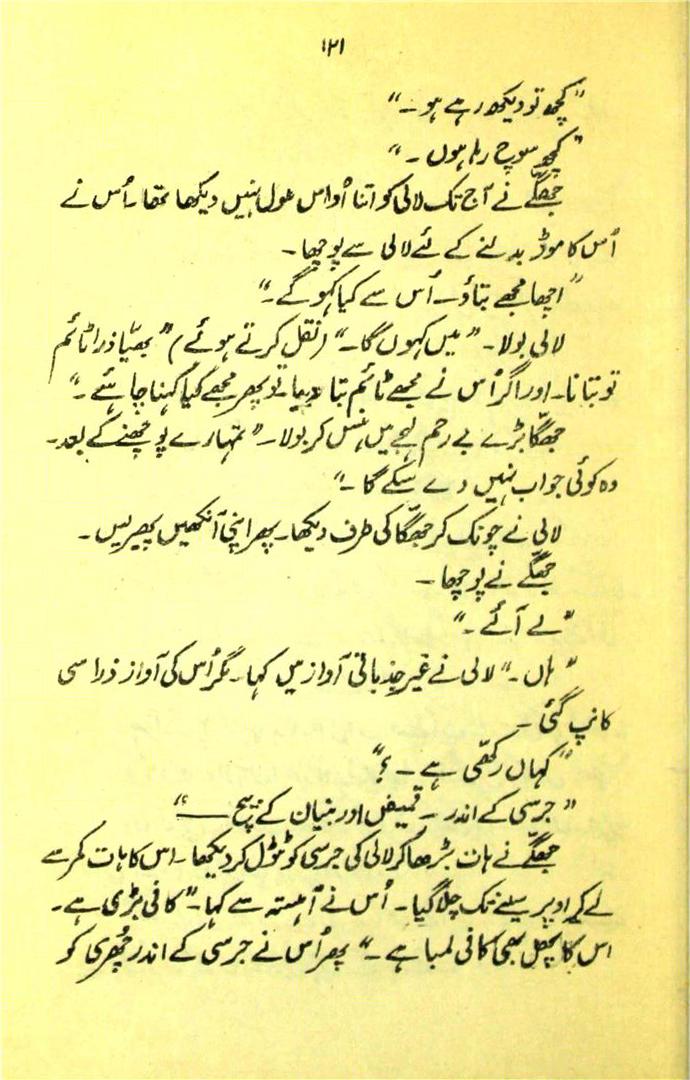 ۱۲۱
"کچھ تو دیکھ رہے ہو۔"
"کچھ سوچ رہا ہوں۔"
جھگّے نے آج تک لالی کو اتنا اُداس ملول نہیں دیکھا تھا۔ اُس نے
اُس کا موڈ بدلنے کے لئے لالی سے پوچھا۔
"اچھا مجھے بتاؤ۔ اُس سے کیا کہو گے۔"
لالی بولا۔ "میں کہوں گا۔" (نقل کرتے ہوئے) "بھیّا ذرا ٹائم
تو بتانا۔ اور اگر اُس نے مجھے ٹائم بتا دیا۔ تو پھر مجھے کیا کہنا چاہئیے۔"
جھگّا بڑے بے رحم لہجے میں ہنس کر بولا۔ "تمہارے پوچھنے کے بعد۔
وہ کوئی جواب نہیں دے سکے گا۔"
لالی نے چونک کر جھگّا کی طرف دیکھا۔ پھر اپنی آنکھیں پھیر لیں۔
جھگّے نے پوچھا۔
"لے آئے۔"
"ہاں۔" لالی نے غیر جذباتی آواز میں کہا۔ مگر اُس کی آواز ذرا سی
کانپ گئی۔
"کہاں رکھّی ہے۔؟"
"جرسی کے اندر۔ قمیض اور بنیان کے بیچ ——"
جھگّے نے ہات بڑھا کر لالی کی جرسی کو ٹٹول کر دیکھا۔ اس کا ہات کمر سے
لے کے اوپر سینے تک چلا گیا۔ اُس نے آہستہ سے کہا۔ "کافی بڑی ہے۔
اس کا پھل بھی کافی لمبا ہے۔" پھر اُس نے جرسی کے اندر چھُری کو